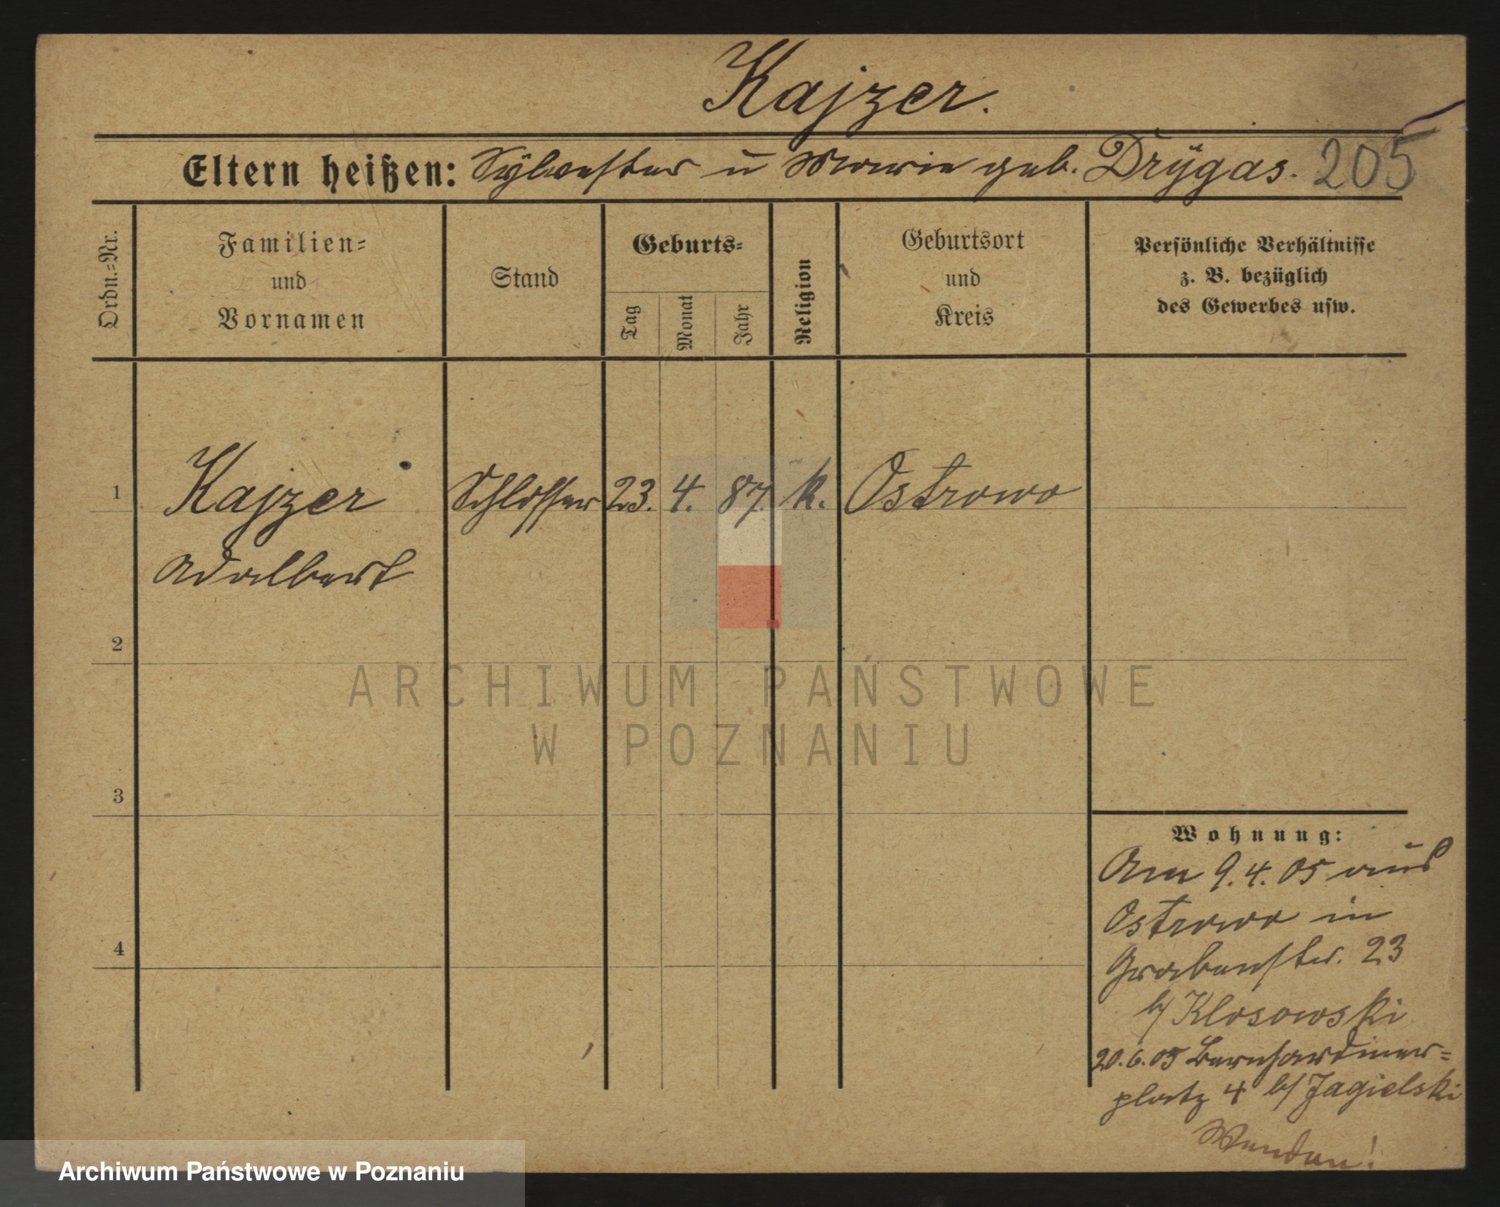 Kajzer.
Eltern heißen: Sylvester u Marie geb. Drÿgas. 205
Ordn.=Nr.
Familien=
und
Vornamen
Stand
Geburts=
Tag
Monat
Jahr
Religion
Geburtsort
und
Kreis
Persönliche Verhältnisse
z. B. bezüglich
des Gewerbes usw.
1 Kajzer Schlosser 23. 4. 87. k. Ostrowo
Adalbert
2
ARCHIWUM PAŃSTWOWE
W POZNANIU
3
Wohnung:
Am 9.4.05 aus
Ostrowo in
4
Grabenstr. 23
b/ Klosowski
20.6.05 Bernhardiner=
platz 4 b/ Jagielski
Wenden!
Archiwum Państwowe w Poznaniu